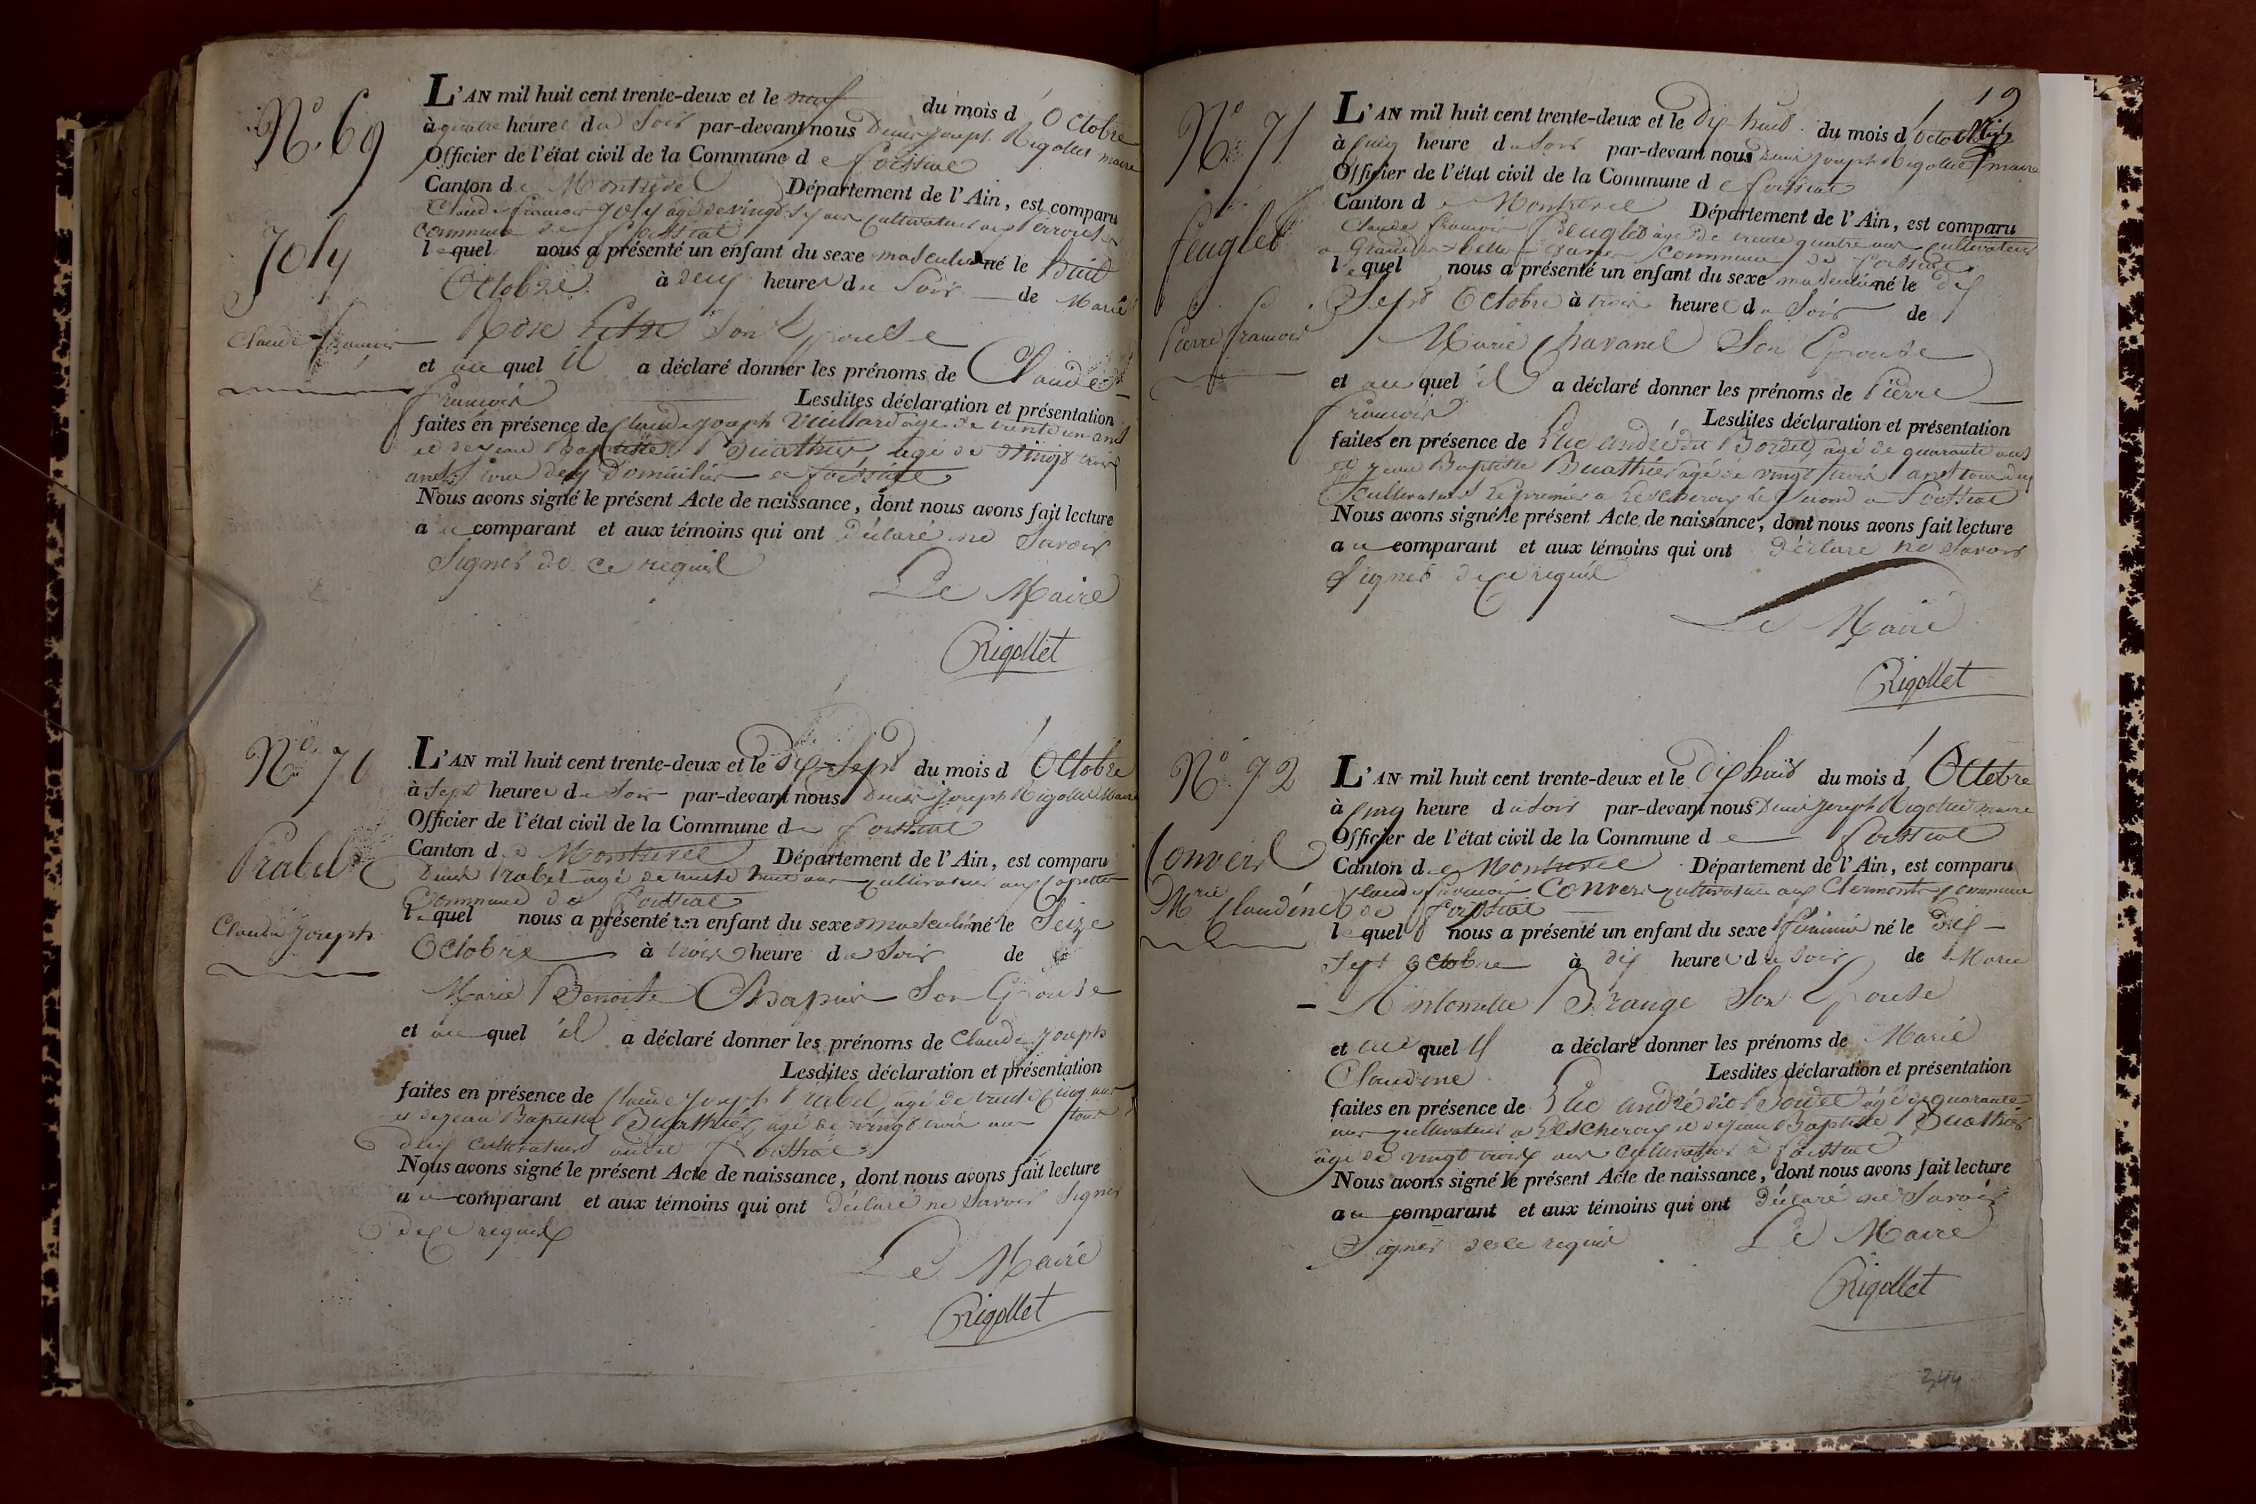 N° 69
Joly
Claude françois
L'AN mil huit cent trente-deux et le neuf du mois d'Octobre
à quatre heures du Soir par-devant nous Denis Joseph Rigollet maire
Officier de l'état civil de la Commune de foissiat
Canton de Montrevel Département de l'Ain, est comparu
Claude françois Joly agé de vingt six ans cultivateur aux
commune de foissiat
lequel nous a présenté un enfant du sexe masculin né le huit
Octobre à deux heures du Soir de Marie
Rose son Epouse
et au quel il a déclaré donner les prénoms de Claude
françois Lesdites déclaration et présentation
faites en présence de Claude Joseph Vuillard agé de trente un ans
et de jean Baptiste Buathier agé de vingt trois
ans tous deux Domiciliés a foissiat
Nous avons signé le présent Acte de naissance, dont nous avons fait lecture
au comparant et aux témoins qui ont déclaré ne Savoir
Signer de ce requis
Le Maire
Rigollet
N° 70
Prabel
Claude Joseph
L'AN mil huit cent trente-deux et le Dix-Sept du mois d'Octobre
à Sept heures du Soir par-devant nous Denis Joseph Rigollet Maire
Officier de l'état civil de la Commune de foissiat
Canton de Montrevel Département de l'Ain, est comparu
Denis Prabel agé de trente huit ans cultivateur aux
Commune de Foissiat
lequel nous a présenté un enfant du sexe masculin né le Seize
Octobre à trois heure du Soir de
Marie Benoite Chapuis Son Epouse
et au quel il a déclaré donner les prénoms de Claude Joseph
Lesdites déclaration et présentation
faites en présence de Claude Joseph Prabel agé de trente Cinq ans
et de jean Baptiste Buathier agé de vingt trois ans tous
deux cultivateurs Foissiat
Nous avons signé le présent Acte de naissance, dont nous avons fait lecture
au comparant et aux témoins qui ont Déclaré ne Savoir Signer
de ce requis
Le Maire
Rigollet
19
N° 71
feuglet
Pierre françois
L'AN mil huit cent trente-deux et le dix huit du mois d'octobre
à cinq heure du Soir par-devant nous Denis Joseph Rigollet maire
Officier de l'état civil de la Commune de foissiat
Canton de Montrevel Département de l'Ain, est comparu
Claude françois feuglet agé de trente quatre ans cultivateur
commune de foissiat
lequel nous a présenté un enfant du sexe masculin né le dix
Sept Octobre à trois heure du Soir de
Marie Chavanel Son Epouse
et au quel il a déclaré donner les prénoms de Pierre
françois Lesdites déclaration et présentation
faites en présence de Luc andré dit Bordet agé de quarante ans
et jean Baptiste Buathier agé de vingt trois ans tous deux
cultivateurs le premier a Lescheroux le second a foissiat
Nous avons signé le présent Acte de naissance, dont nous avons fait lecture
au comparant et aux témoins qui ont déclaré ne Savoir
Signer de ce requis
Le Maire
Rigollet
N° 72
Convers
Mrie Claudine
L'AN mil huit cent trente-deux et le Dix huit du mois d'Octobre
à cinq heure du Soir par-devant nous Denis Joseph Rigollet maire
Officier de l'état civil de la Commune de foissiat
Canton de Montrevel Département de l'Ain, est comparu
Claude françois Convers cultivateur aux Clemonts commune
de foissiat
lequel nous a présenté un enfant du sexe féminin né le Dix
Sept Octobre à dix heures du Soir de Marie
Antoinette Brange Son Epouse
et au quel il a déclaré donner les prénoms de Marie
Claudine Lesdites déclaration et présentation
faites en présence de Luc andré dit Bordet agé de quarante
ans cultivateur a Lescheroux et de jean Baptiste Buathier
agé de vingt trois ans cultivateur a foissiat
Nous avons signé le présent Acte de naissance, dont nous avons fait lecture
au comparant et aux témoins qui ont Déclaré ne Savoir
Signer de ce requis Le Maire
Rigollet
344